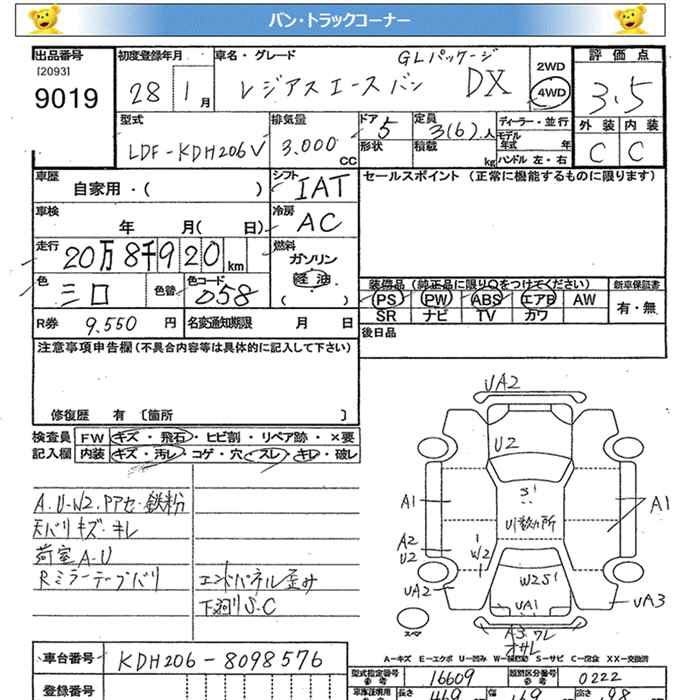 バン・トラックコーナー
出品番号 初度登録年月 車名・グレード GLパッケージ 2WD 評価点
[2093] 9019 28 1月 レジアスエースバン DX 4WD 3.5
型式 排気量 ドア 5 定員 3(6)人 ディーラー・並行 外装 内装
LDF-KDH206V 3.000 CC 形状 積載 kg モデル年式 年 ハンドル 左・右 C C
車歴 自家用・( ) シフト IAT セールスポイント (正常に機能するものに限ります)
車検 年 月( 日) 冷房 AC
走行 20万8千920km 燃料 ガソリン 軽油
色 シロ 色替 色コード 058 装備品 (純正品に限り○をつけてください) 新車保証書
PS PW ABS エアB AW 有・無
SR ナビ TV カワ
R券 9.550円 名変通知期限 月 日 後日品
注意事項申告欄(不具合内容等は具体的に記入して下さい)
修復歴 有 〔箇所 〕
検査員 FW キズ・飛石・ヒビ割・リペア跡・×要
記入欄 内装 キズ・汚レ・コゲ・穴・スレ・キレ・破レ
A.U-W2.Pアセ・鉄粉
天バリキズ・キレ
荷室A-U
Rミラーテープバリ エンドパネル歪み
下廻りS.C
UA2
U2
S1
A1 U1数カ所 A1
A2 U2 W2
UA2 W2S1 UA3
UA1
スペア A3 ワレ
オサレ
A-キズ E-エクボ U-凹み W-補修跡 S-サビ C-腐食 XX-交換済
車台番号 KDH206-8098576 型式指定番号 16609 類別区分番号 0222
登録番号 長さ 469